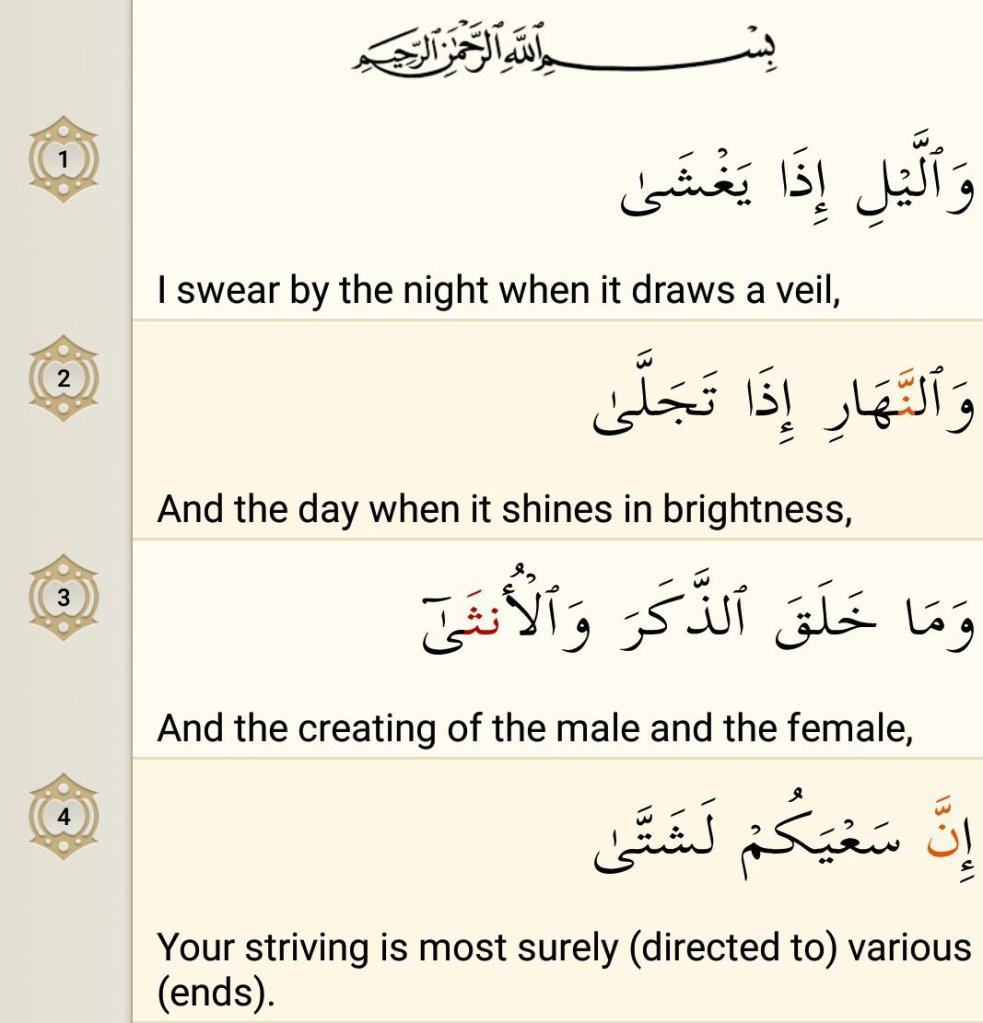 بِسْمِ ٱللَّهِ ٱلرَّحْمَٰنِ ٱلرَّحِيمِ
1
وَٱلَّيْلِ إِذَا يَغْشَىٰ
I swear by the night when it draws a veil,
2
وَٱلنَّهَارِ إِذَا تَجَلَّىٰ
And the day when it shines in brightness,
3
وَمَا خَلَقَ ٱلذَّكَرَ وَٱلْأُنثَىٰٓ
And the creating of the male and the female,
4
إِنَّ سَعْيَكُمْ لَشَتَّىٰ
Your striving is most surely (directed to) various
(ends).